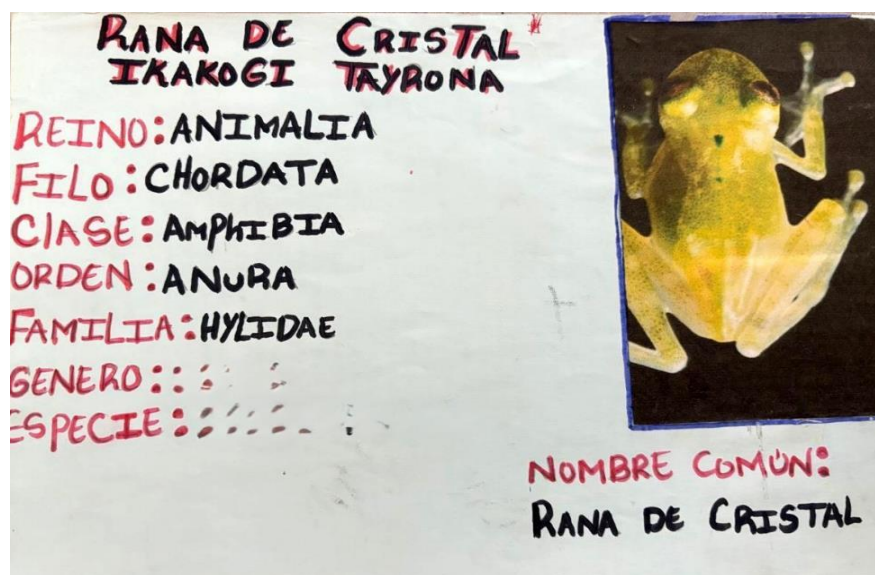 RANA DE CRISTAL*
IKAKOGI TAYRONA
REINO: ANIMALIA
FILO: CHORDATA
ClASE: AMPhIBIA
ORDEN: ANURA
FAMILIA: HYLIDAE
GENERO:
ESPECIE:
NOMBRE COMÚN:
RANA DE CRISTAL